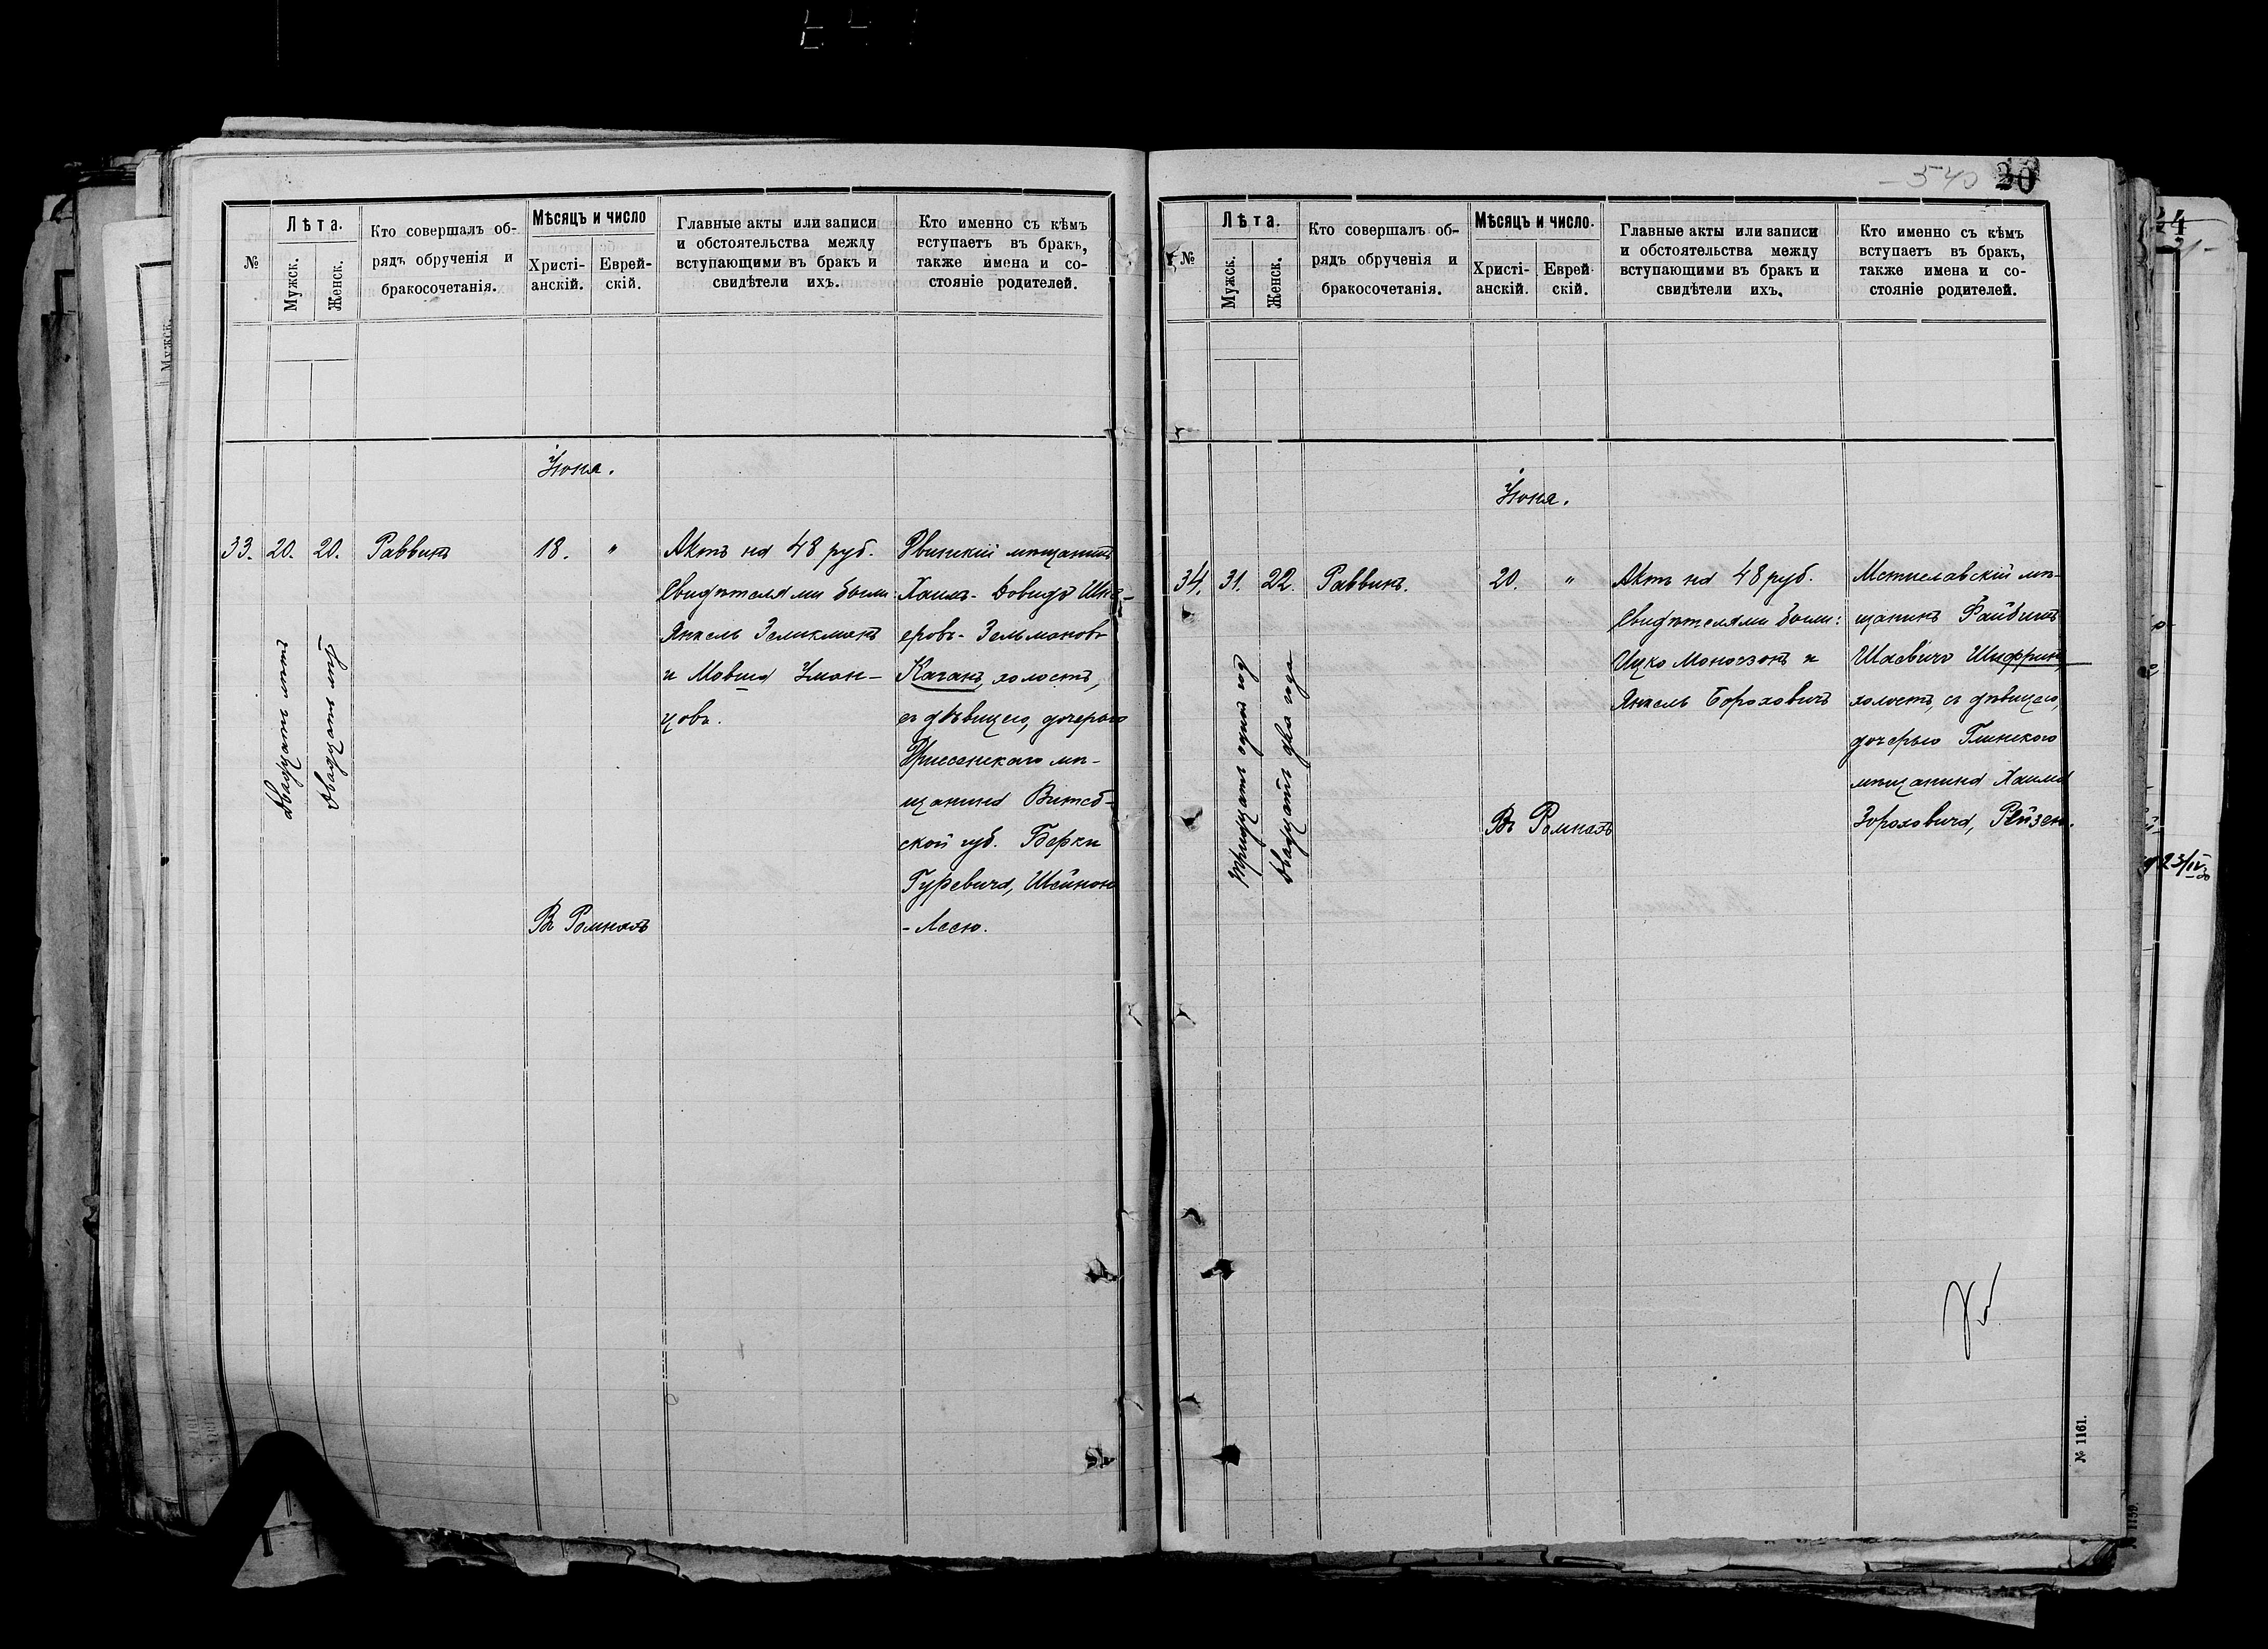 №
Лѣта.
Мужск.
Женск.
Кто совершалъ об-
рядъ обрученія и
бракосочетанія.
Мѣсяцъ и число
Христі-
анскій.
Еврей-
скій.
Главные акты или записи
и обстоятельства между
вступающими въ бракъ и
свидѣтели ихъ.
Кто именно съ кѣмъ
вступаетъ въ бракъ,
также имена и со-
стояніе родителей.
Іюня.
33.
20.
20.
Двадцать лѣтъ
Двадцать лѣтъ
Раввинъ
18.
"
Въ Ромнахъ
Актъ на 48 руб.
Свидѣтелями были
Янкель Зеликманъ
и Мовша
цовъ.
Двинскій мѣщанинъ
Хаимъ-Довидъ Шне-
еровъ-Зельмановъ
Каганъ, холостъ,
съ дѣвицею, дочерью
Дриссенскаго мѣ-
щанина Витеб-
ской губ. Берки
Гуревича, Шейною
-Лесю.
540
20
№
Лѣта.
Мужск.
Женск.
Кто совершалъ об-
рядъ обрученія и
бракосочетанія.
Мѣсяцъ и число.
Христі-
анскій.
Еврей
скій.
Главные акты или записи
и обстоятельства между
вступающими въ бракъ и
свидѣтели ихъ.
Кто именно съ кѣмъ
вступаетъ въ бракъ,
также имена и со-
стояніе родителей.
Іюня.
34.
31.
22.
Тридцать одинъ годъ
Двадцать два года
Раввинъ.
20.
"
Въ Ромнахъ
Актъ на 48 руб.
Свидѣтелями были:
Ицко Моносзонъ и
Янкель Бороховичъ
Мстиславскій мѣ-
щанинъ Файбишъ
Шаевичъ Шифринъ,
холостъ, съ дѣвицею,
дочерью Глинскаго
мѣщанина Хаима
Зороховича, Рейзею.
№ 1161.